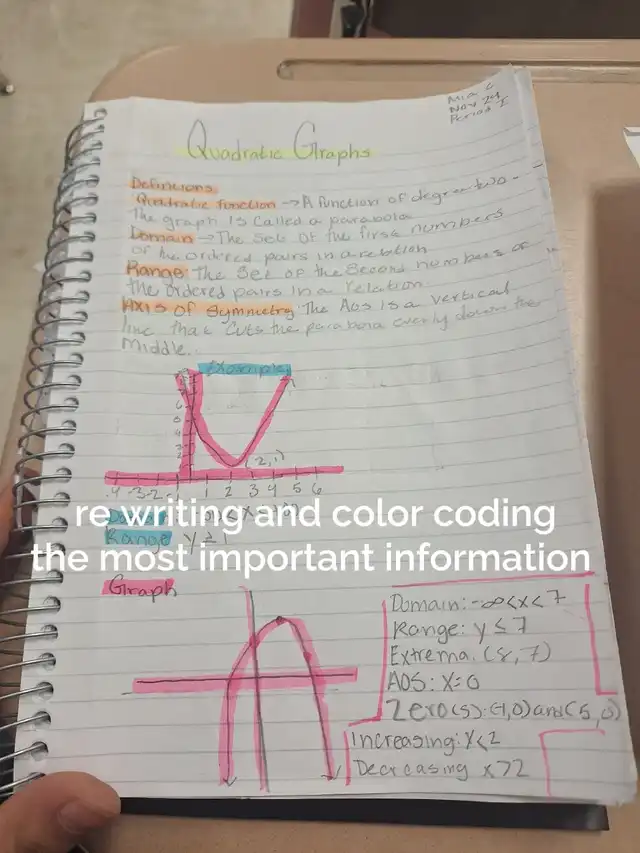 Mia C
Nov 29
Period I
Quadratic Graphs
Definitions
Quadratic Function → A function of degree two-
The graph is called a parabola
Domain → The set of the first numbers
of the ordered pairs in a relation
Range: The set of the second numbers of
the ordered pairs in a relation.
Axis of Symmetry The AOS is a vertical
line that "cuts the parabola evenly down the
Middle.
Example
(2,1)
-4 -3 -2 -1 1 2 3 4 5 6
re writing and color coding
the most important information
Range y ≥ 1
Graph
Domain: -∞<x<7
Range: y ≤ 7
Extrema. (8,7)
AOS: X=0
Zero(s): (-1,0) and (5,0)
Increasing: x<2
Decreasing x>2